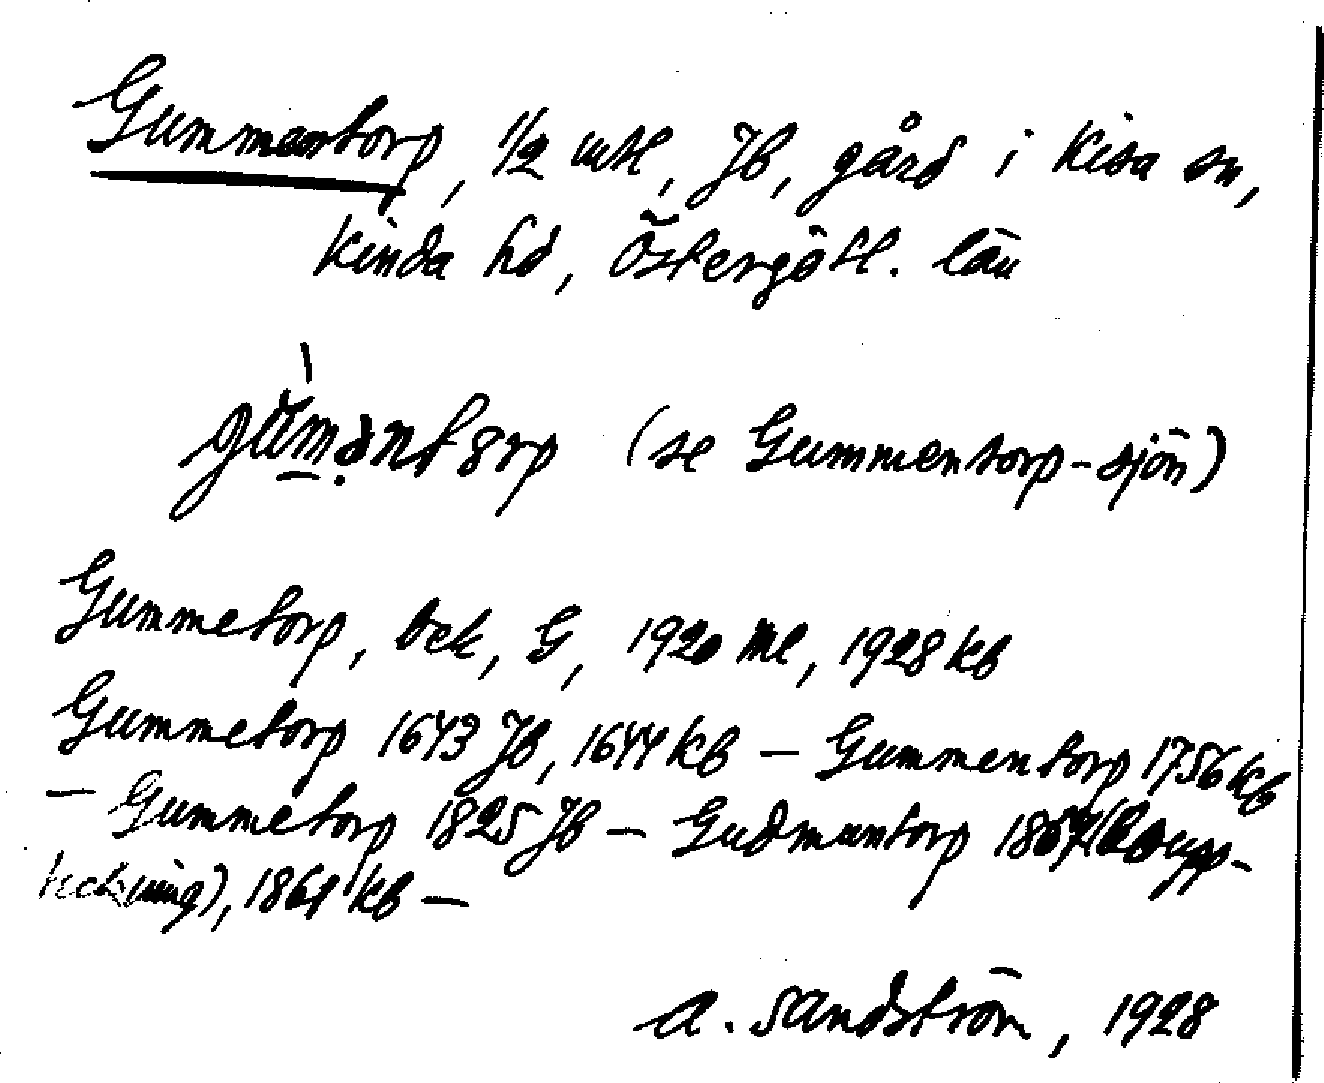 Gummentorp, 1/2 mtl, Jb, gård i Kisa sn,
Kinda hd, Östergötl. län
gùməntorp (se Gummentorp-sjön)
Gummetorp, bek, G, 1920 Ml, 1928 Kb
Gummetorp 1643 Jb, 1644 Kb — Gummentorp 1756 Kb
— Gummetorp 1825 Jb — Gudmuntorp upp-
teckning), Kb —
A. Sandström, 1928